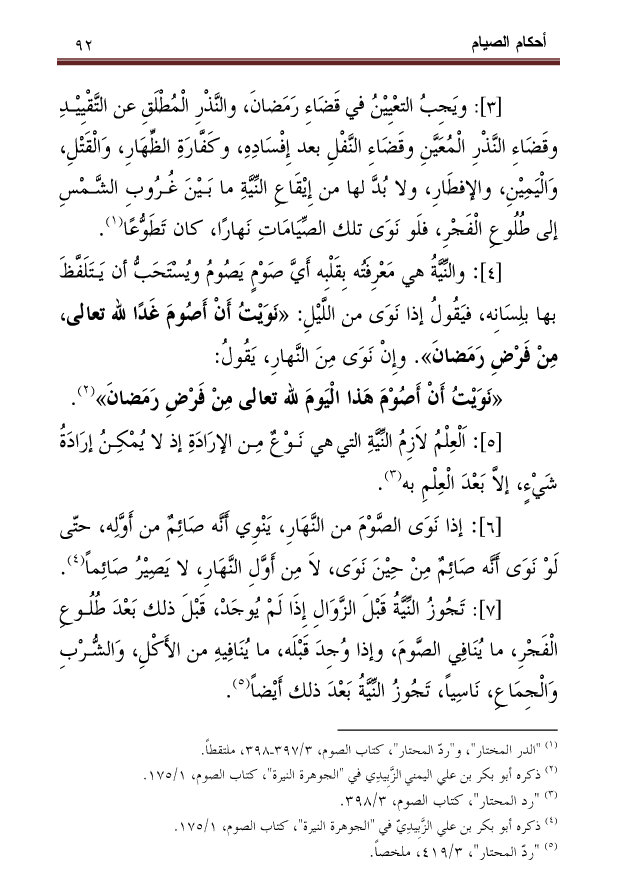 أحكام الصيام ٩٢
[٣]: ويَجِبُ التعْيْيْنُ في قَضَاءِ رَمَضانَ، والنَّذْرِ الْمُطْلَقِ عن التَّقْيِيْدِ
وقَضَاءِ النَّذْرِ الْمُعَيَّنِ وقَضَاءِ النَّفْلِ بعد إفْسَادِهِ، وكَفَّارَةِ الظِّهَارِ، وَالْقَتْلِ،
وَالْيَمِيْنِ، والإفطَارِ، ولا بُدَّ لها من إيْقَاعِ النِّيَّةِ ما بَيْنَ غُرُوبِ الشَّمْسِ
إلى طُلُوعِ الْفَجْرِ، فلَو نَوَى تلك الصِّيَامَاتِ نَهارًا، كان تَطَوُّعًا(١).
[٤]: والنِّيَّةُ هي مَعْرِفَتُه بِقَلْبِه أَيَّ صَوْمٍ يَصُومُ ويُسْتَحَبُّ أن يَتَلَفَّظَ
بها بلِسَانِه، فيَقُولُ إذا نَوَى من اللَّيْلِ: «نَوَيْتُ أَنْ أَصُومَ غَدًا لله تعالى،
مِنْ فَرْضِ رَمَضانَ». وإنْ نَوَى مِنَ النَّهارِ، يَقُولُ:
«نَوَيْتُ أَنْ أَصُوْمَ هَذا الْيَومَ لله تعالى مِنْ فَرْضِ رَمَضانَ»(٢).
[٥]: اَلْعِلْمُ لاَزِمُ النِّيَّةِ التي هي نَوْعٌ مِن الإرَادَةِ إذ لا يُمْكِنُ إرَادَةُ
شَيْءٍ، إلاَّ بَعْدَ الْعِلْمِ به(٣).
[٦]: إذا نَوَى الصَّوْمَ من النَّهَارِ، يَنْوِي أنَّه صَائِمٌ من أوَّلِه، حتّى
لَوْ نَوَى أنَّه صَائِمٌ مِنْ حِيْنَ نَوَى، لاَ مِن أَوَّلِ النَّهَارِ، لا يَصِيْرُ صَائِماً(٤).
[٧]: تَجُوزُ النِّيَّةُ قَبْلَ الزَّوَالِ إِذَا لَمْ يُوجَدْ، قَبْلَ ذلك بَعْدَ طُلُوعِ
الْفَجْرِ، ما يُنَافِي الصَّومَ، وإذا وُجِدَ قَبْلَه، ما يُنَافِيهِ من الأَكْلِ، وَالشُّرْبِ
وَالْجِمَاعِ، نَاسِياً، تَجُوزُ النِّيَّةُ بَعْدَ ذلك أَيْضاً(٥).
(١) "الدر المختار"، و"ردّ المحتار"، كتاب الصوم، ٣/٣٩٧-٣٩٨، ملتقطاً.
(٢) ذكره أبو بكر بن علي اليمني الزَّبِيدِي في "الجوهرة النيرة"، كتاب الصوم، ١/١٧٥.
(٣) "رد المحتار"، كتاب الصوم، ٣/٣٩٨.
(٤) ذكره أبو بكر بن علي الزَّبِيدِيّ في "الجوهرة النيرة"، كتاب الصوم، ١/١٧٥.
(٥) "ردّ المحتار"، ٣/٤١٩، ملخصاً.